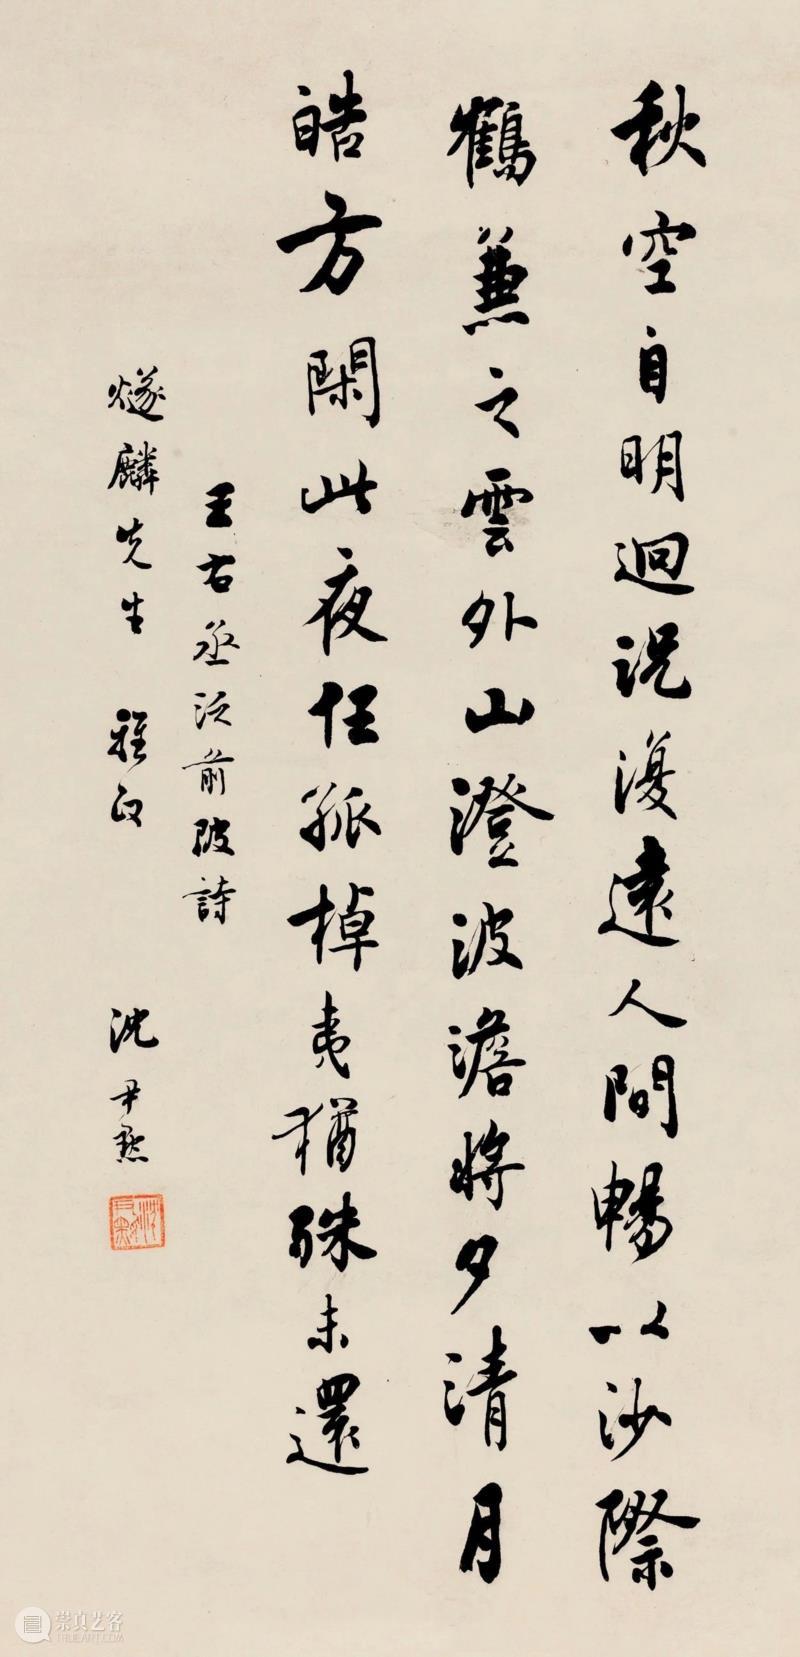 秋空自明逈況復遠人間暢以沙際
鶴兼之雲外山澄波澹將夕清月
皓方閑此夜任孤棹夷猶殊未還
王右丞泛前陂詩
燧麟先生 雅政 沈尹默
崇真艺客
TRUEART.COM